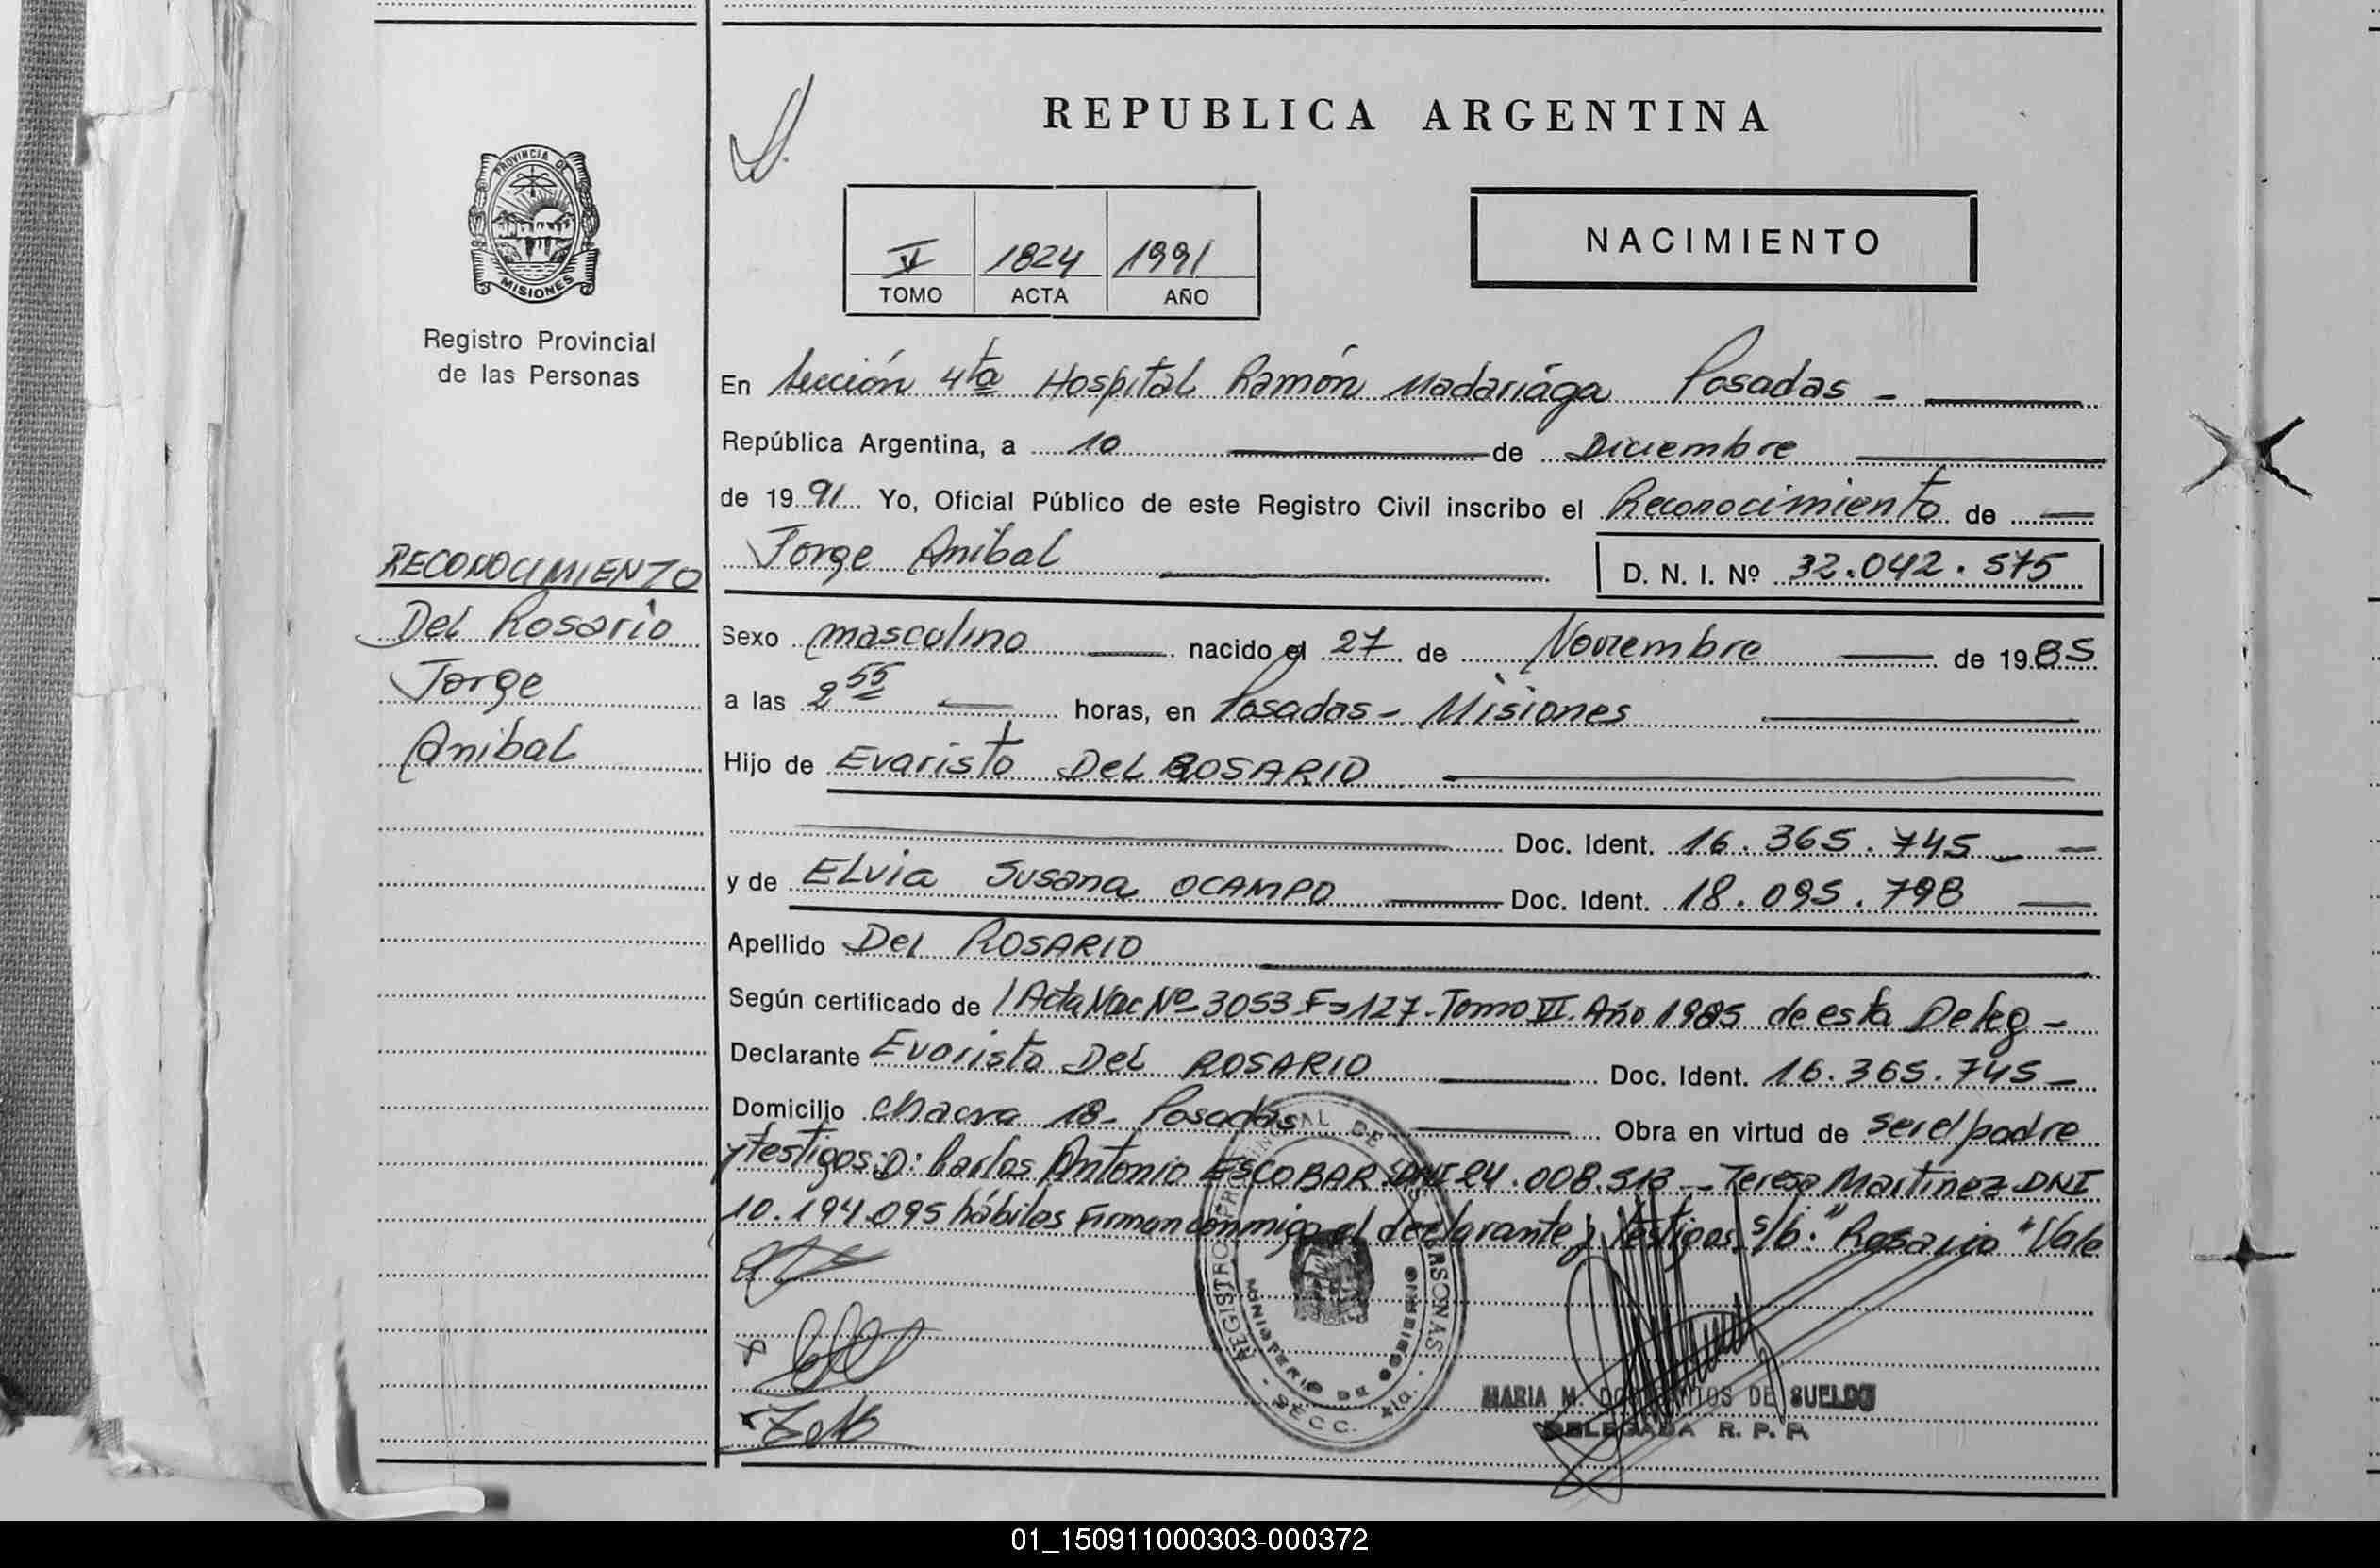 REPUBLICA ARGENTINA
PROVINCIA DE
MISIONES
Registro Provincial
de las Personas
V 1824 1991
TOMO ACTA AÑO
NACIMIENTO
En Sección 4ta Hospital Ramón Madariága Posadas -
República Argentina, a 10 de Diciembre
de 1991 Yo, Oficial Público de este Registro Civil inscribo el Reconocimiento de
Jorge Anibal D. N. I. Nº 32.042.575
RECONOCIMIENTO
Del Rosario
Jorge
Anibal
Sexo masculino nacido el 27 de Noviembre de 1985
a las 2 55 horas, en Posadas - Misiones
Hijo de Evaristo Del ROSARIO
Doc. Ident. 16.365.745 -
y de ELvia Susana OCAMPO Doc. Ident. 18.095.798
Apellido Del ROSARIO
Según certificado de Acta Nac Nº 3053 Fº 127 - Tomo VI. Año 1985 de esta Deleg -
Declarante Evaristo Del ROSARIO Doc. Ident. 16.365.745 -
Domicilio Chacra 18 - Posadas Obra en virtud de ser el padre
y testigos: D: Carlos Antonio ESCOBAR DNI 24.008.513 - Teresa Martinez DNI
10.194.095 hábiles Firman conmigo el declarante y testigos. s/b: "Rosario" Vale
REGISTRO PROVINCIAL DE LAS PERSONAS
MINISTERIO DE GOBIERNO
- SECC. 4ta. -
MARIA M. DE SUELDO
DELEGADA R. P. P.
01_150911000303-000372